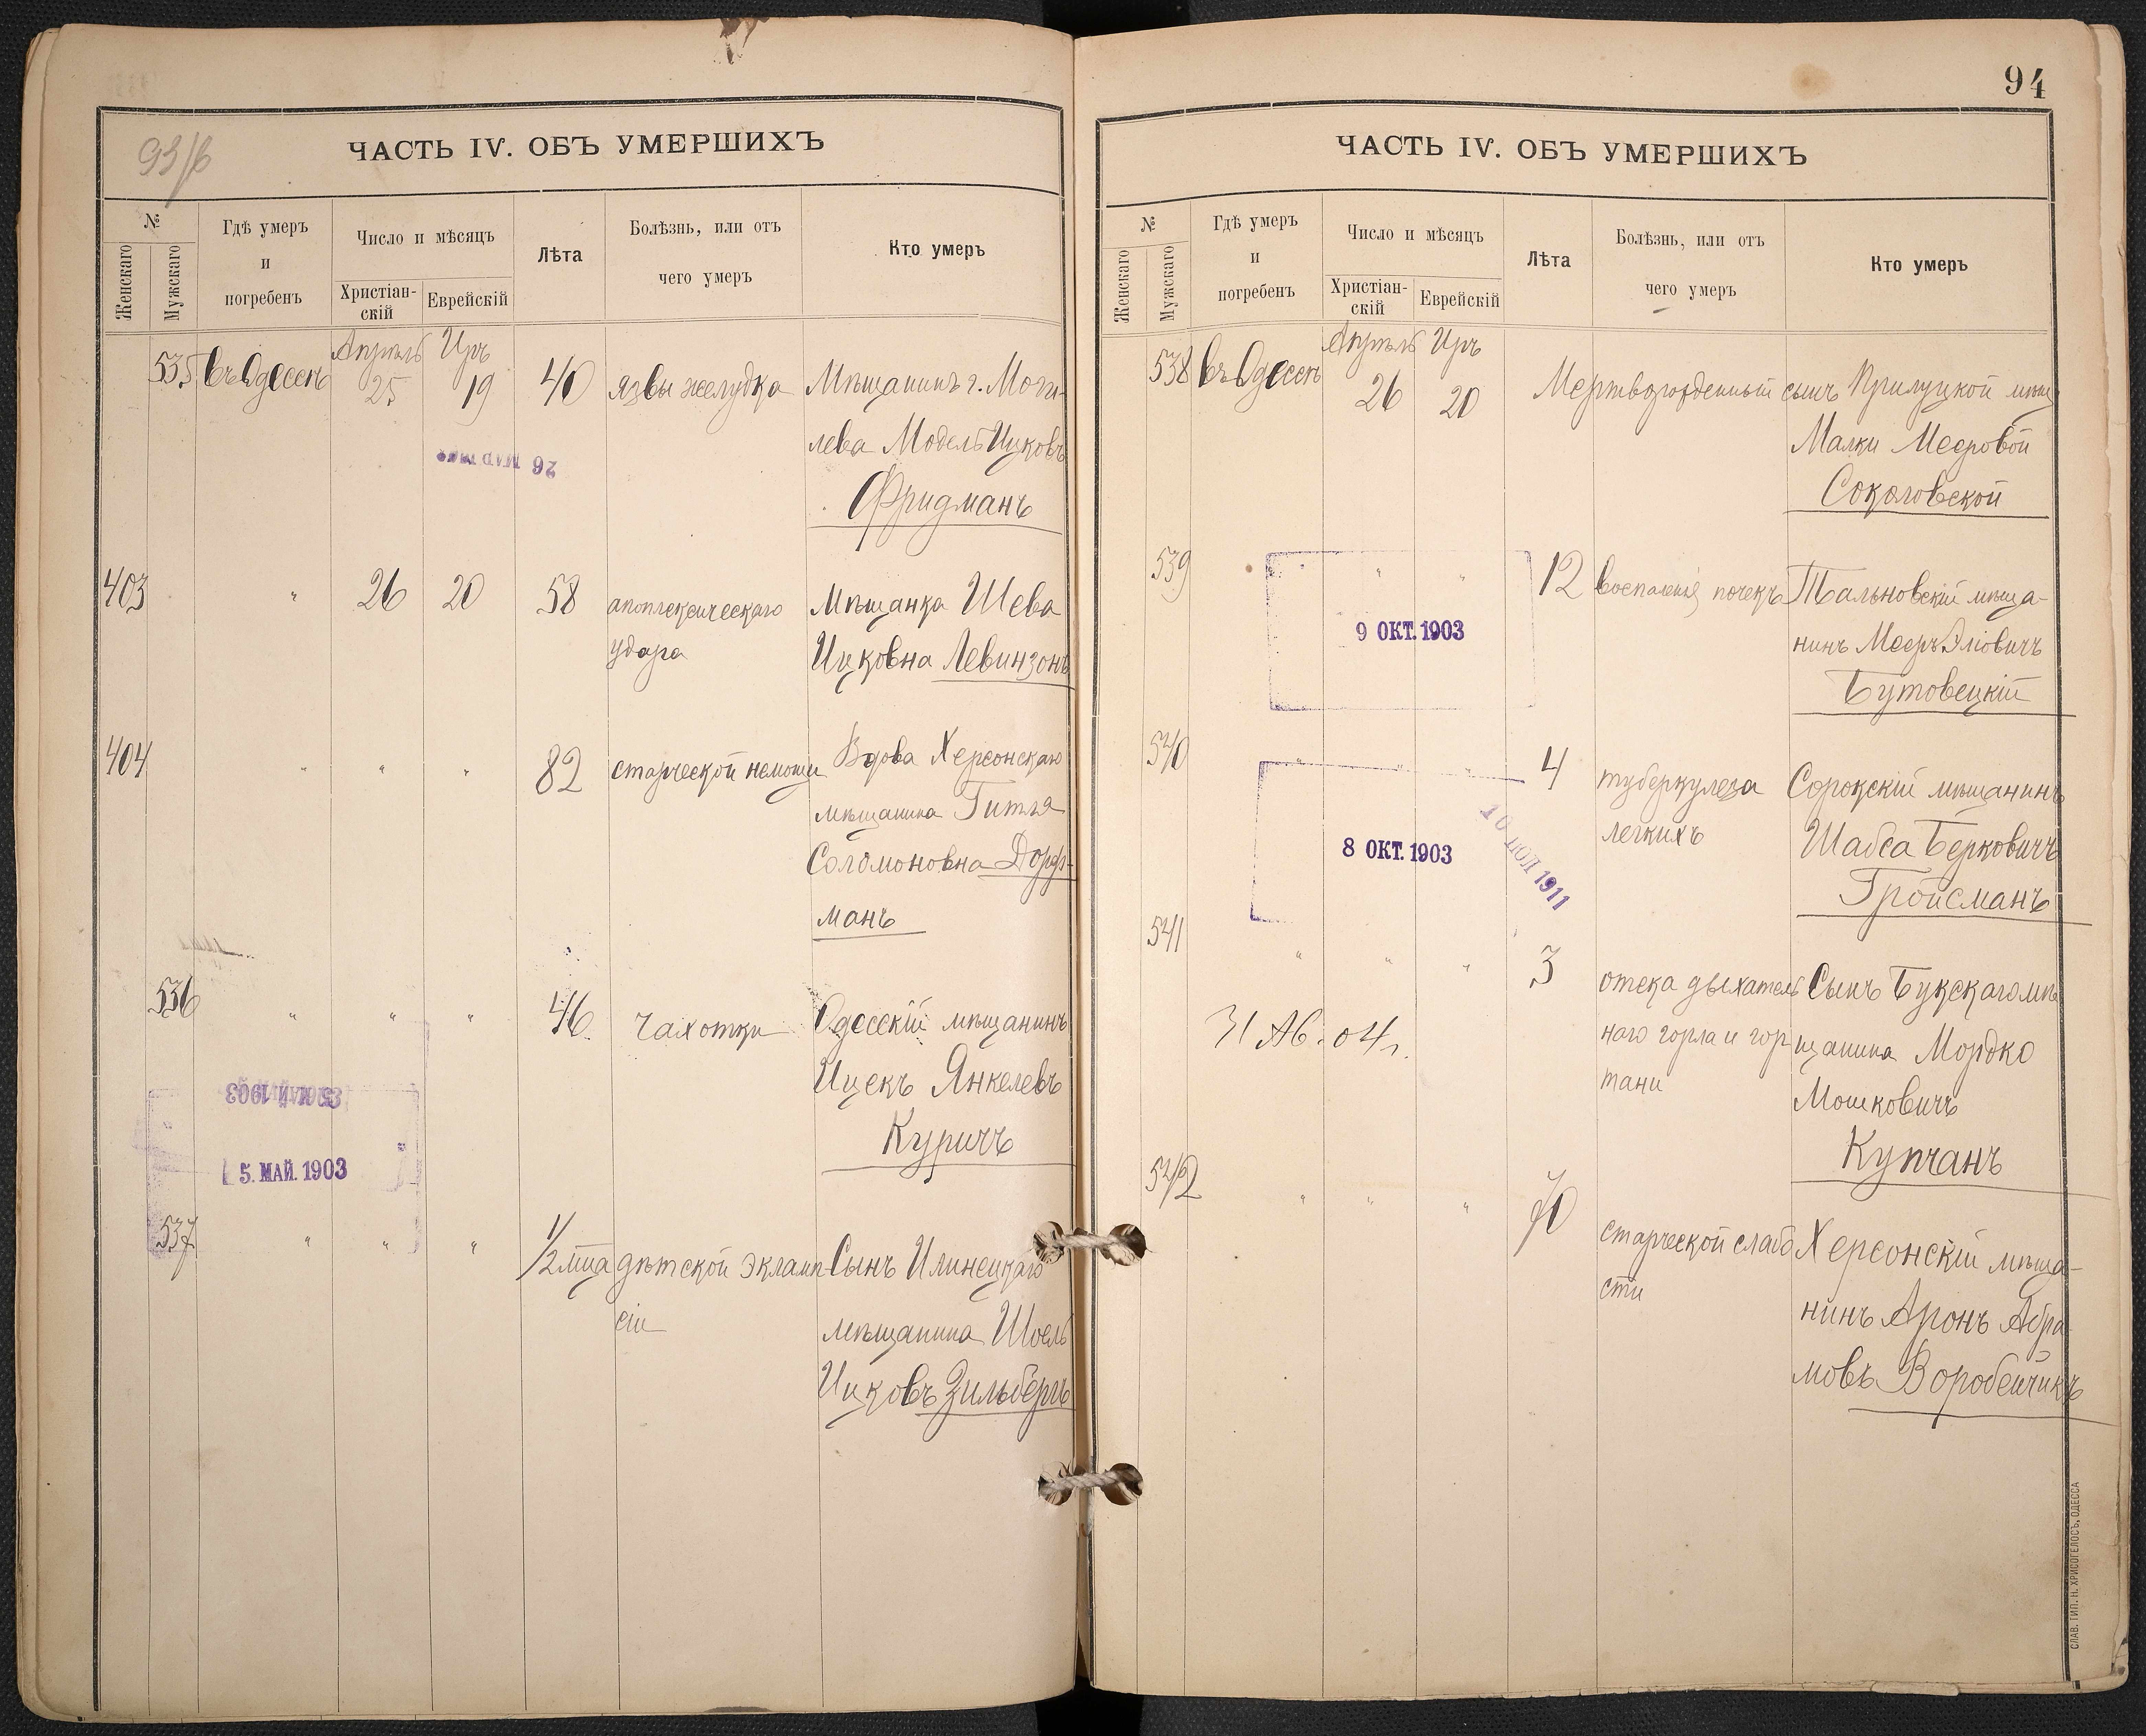 93/б
ЧАСТЬ IV. ОБЪ УМЕРШИХЪ
№
Женскаго
Мужскаго
Гдѣ умеръ
и
погребенъ
Число и мѣсяцъ
Христіан-
скій
Еврейскій
Лѣта
Болѣзнь, или отъ
чего умеръ
Кто умеръ
Апрѣль Иръ
535 въ Одессѣ 25 19 40 язвы желудка Мѣщанинъ г. Моги-
лева Модель Ицковъ
Фридманъ
26 МАР
403 " 26 20 58 апоплексическаго Мѣщанка Шева
удара Ицковна Левинзонъ
404 " " " 82 старческой немощи Вдова Херсонскаго
мѣщанина Гитля
Соломоновна Дорф-
манъ
536 " " " 46 чахотки Одесскій мѣщанинъ
Ицекъ Янкелевъ
Куричъ
МАЙ 1903
5. МАЙ. 1903
537 " " " 1/2 м͠ца дѣтской эклами- Сынъ Илинецкаго
сіи мѣщанина Шоель
Ицковъ Зильберъ
94
ЧАСТЬ IV. ОБЪ УМЕРШИХЪ
№
Женскаго
Мужскаго
Гдѣ умеръ
и
погребенъ
Число и мѣсяцъ
Христіан-
скій
Еврейскій
Лѣта
Болѣзнь, или отъ
чего умеръ
Кто умеръ
Апрѣль Иръ
538 въ Одессѣ 26 20 Мертворожденный сынъ Прилуцкой мѣщ
Малки Мееровой
Соколовской
539 " " 12 воспаленія почекъ Тальновскій мѣща-
нинъ Мееръ Эліовичъ
Бутовецкій
9 ОКТ. 1903
540 " " " 4 туберкулеза Сорокскій мѣщанинъ
легкихъ Шабса Берковичъ
Гройсманъ
8 ОКТ. 1903
10 1911
541 " " " 3 отека дыхатель Сынъ Букскаго мѣ
наго горла и гор щанина Мордко
тани Мошковичъ
Купчанъ
31 Аб. 04 г.
542 " " " 70 старческой слабо Херсонскій мѣща-
сти нинъ Аронъ Абра
мовъ Воробейчикъ
СЛАВ. ТИП. Н. ХРИСОГЕЛОСЪ, ОДЕССА